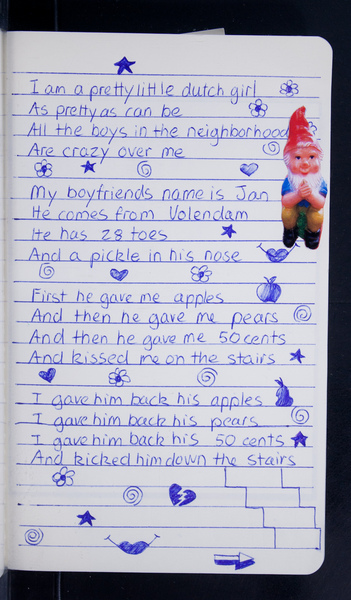 I am a pretty little dutch girl
As pretty as can be
All the boys in the neighborhood
Are crazy over me
My boyfriends name is Jan
He comes from Volendam
He has 28 toes
And a pickle in his nose
First he gave me apples
And then he gave me pears
And then he gave me 50 cents
And kissed me on the stairs
I gave him back his apples
I gave him back his pears
I gave him back his 50 cents
And kicked him down the stairs